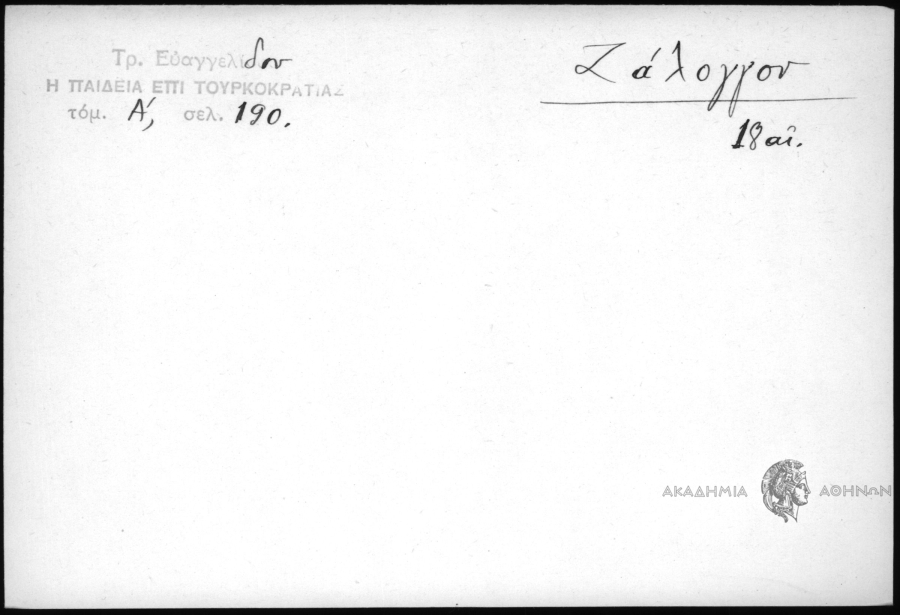 Τρ. Εὐαγγελίδου
Η ΠΑΙΔΕΙΑ ΕΠΙ ΤΟΥΡΚΟΚΡΑΤΙΑΣ
τόμ. Α΄, σελ. 190.
Ζάλογγον
18 αἰ.
ΑΚΑΔΗΜΙΑ ΑΘΗΝΩΝ